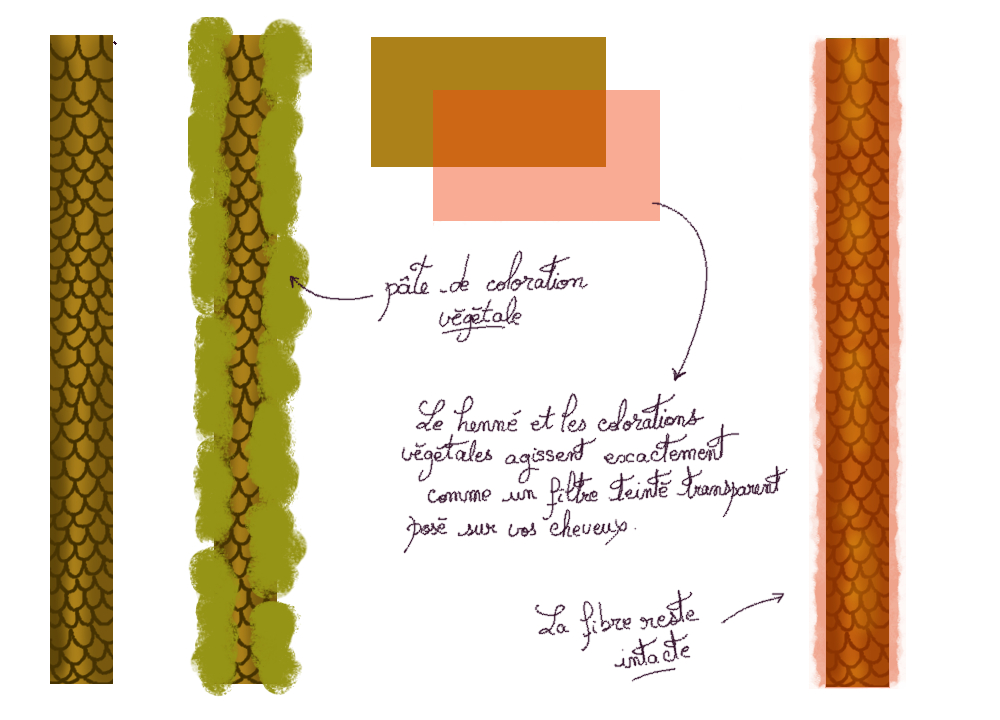 pâte de coloration
végétale
Le henné et les colorations
végétales agissent exactement
comme un filtre teinté transparent
posé sur vos cheveux.
La fibre reste
intacte